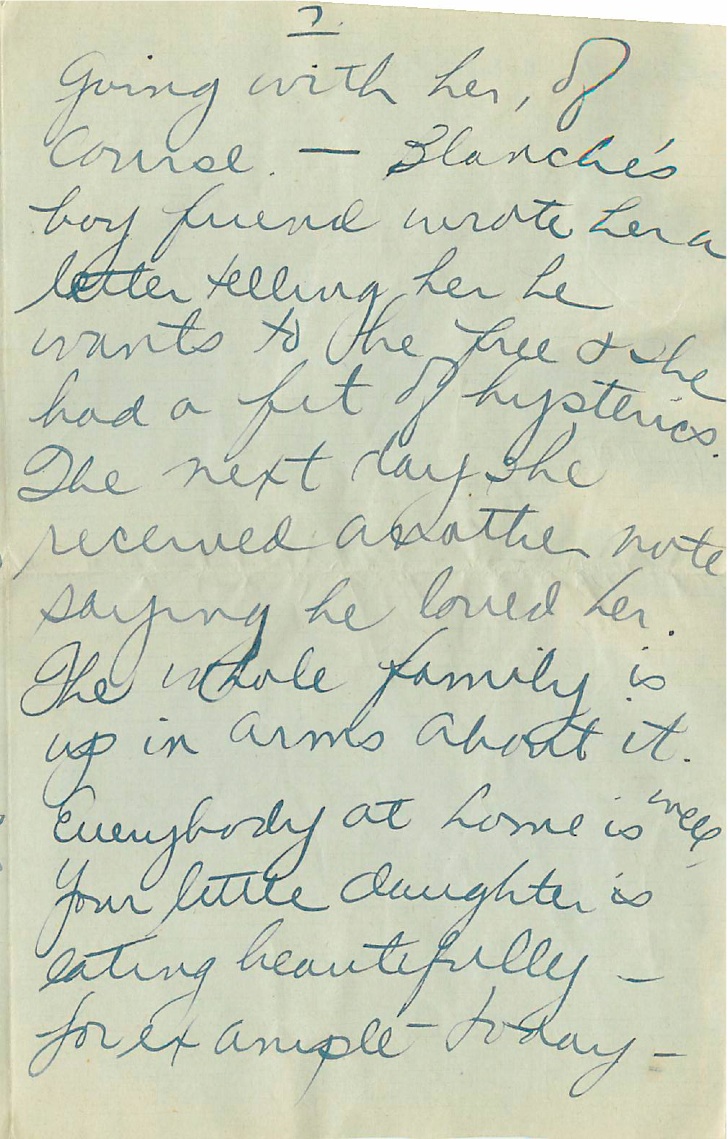 7.
Going with her, of
Course. — Blanche's
boy friend wrote her a
letter telling her he
wants to be free & she
had a fit of hysterics.
The next day she
received another note
saying he loved her.
The whole family is
up in arms about it.
Everybody at home is well,
Your little daughter is
eating beautifully —
for example — today —